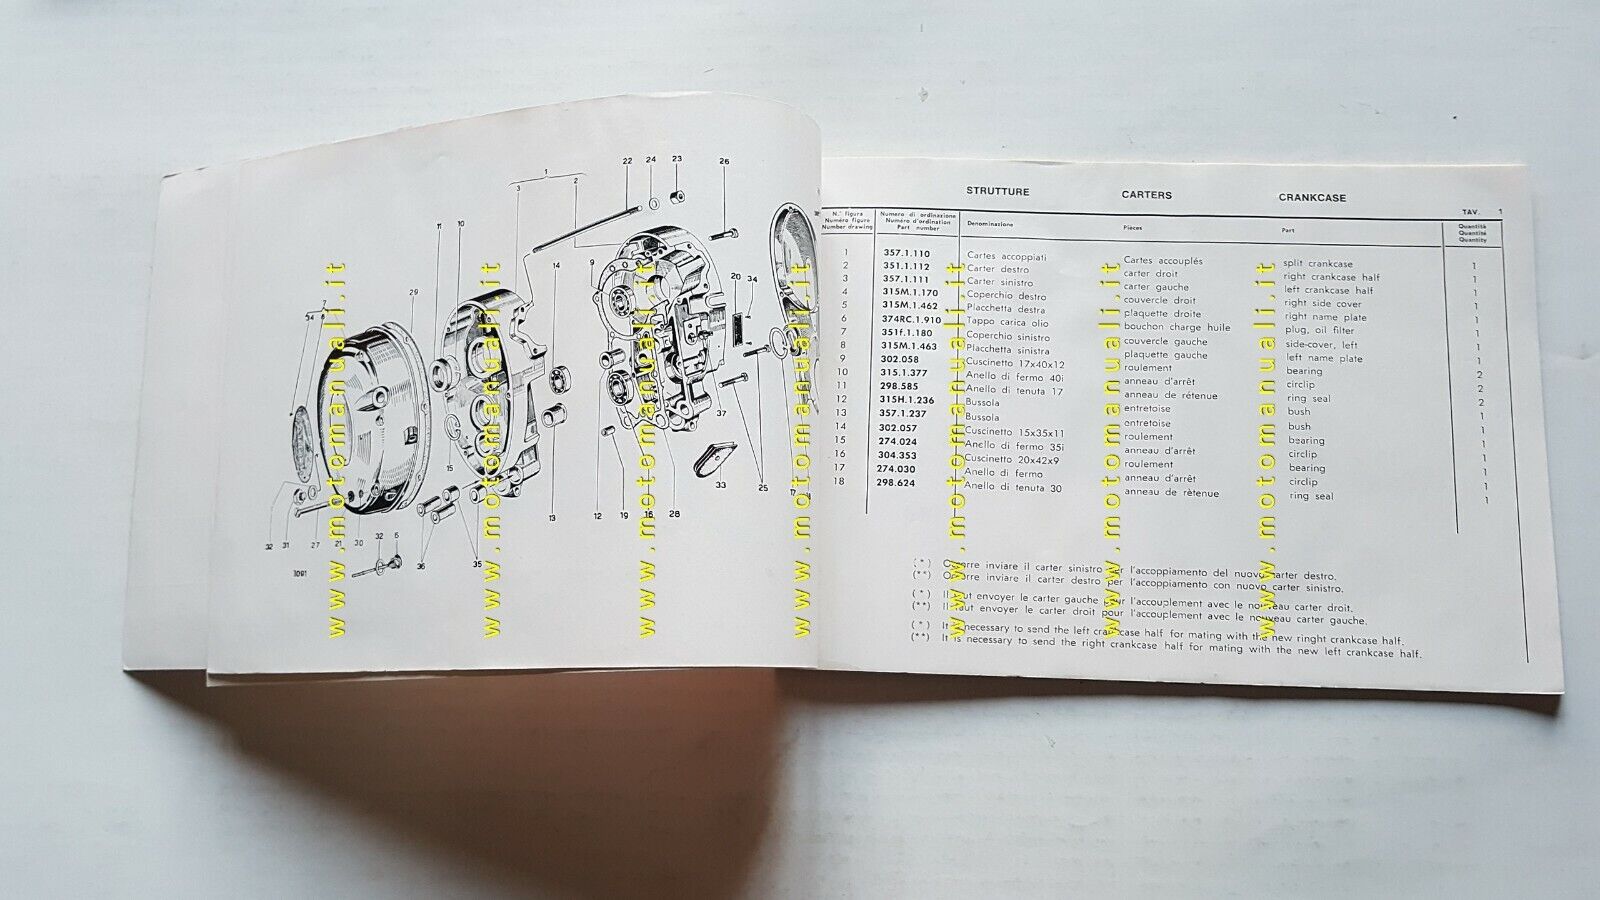 22 24 23 26
1
3 2
11 10 14 9 20 34
29
7
34 8
15
33
25 17
37
32 31 27 21 30 32 6 36 35 13 12 19 16 28
1091
www.motomanuali.it
www.motomanuali.it
www.motomanuali.it
www.motomanuali.it
www.motomanuali.it
www.motomanuali.it
www.motomanuali.it
STRUTTURE CARTERS CRANKCASE
TAV. 1
N.° figura Numero di ordinazione Denominazione Pièces Part Quantità
Numéro figure Numéro d'ordination Quantité
Number drawing Part number Quantity
1 357.1.110 Cartes accoppiati Cartes accouplés split crankcase 1
2 351.1.112 Carter destro carter droit right crankcase half 1
3 357.1.111 Carter sinistro carter gauche left crankcase half 1
4 315M.1.170 Coperchio destro couvercle droit right side cover 1
5 315M.1.462 Placchetta destra plaquette droite right name plate 1
6 374RC.1.910 Tappo carica olio bouchon charge huile plug, oil filter 1
7 351f.1.180 Coperchio sinistro couvercle gauche side-cover, left 1
8 315M.1.463 Placchetta sinistra plaquette gauche left name plate 1
9 302.058 Cuscinetto 17x40x12 roulement bearing 2
10 315.1.377 Anello di fermo 40i anneau d'arrêt circlip 2
11 298.585 Anello di tenuta 17 anneau de rétenue ring seal 2
12 315H.1.236 Bussola entretoise bush 1
13 357.1.237 Bussola entretoise bush 1
14 302.057 Cuscinetto 15x35x11 roulement bearing 1
15 274.024 Anello di fermo 35i anneau d'arrêt circlip 1
16 304.353 Cuscinetto 20x42x9 roulement bearing 1
17 274.030 Anello di fermo anneau d'arrêt circlip 1
18 298.624 Anello di tenuta 30 anneau de rétenue ring seal 1
(*) Occorre inviare il carter sinistro per l'accoppiamento del nuovo carter destro.
(**) Occorre inviare il carter destro per l'accoppiamento con nuovo carter sinistro.
(*) Il faut envoyer le carter gauche pour l'accouplement avec le nouveau carter droit.
(**) Il faut envoyer le carter droit pour l'accouplement avec le nouveau carter gauche.
(*) It is necessary to send the left crankcase half for mating with the new ringht crankcase half.
(**) It is necessary to send the right crankcase half for mating with the new left crankcase half.